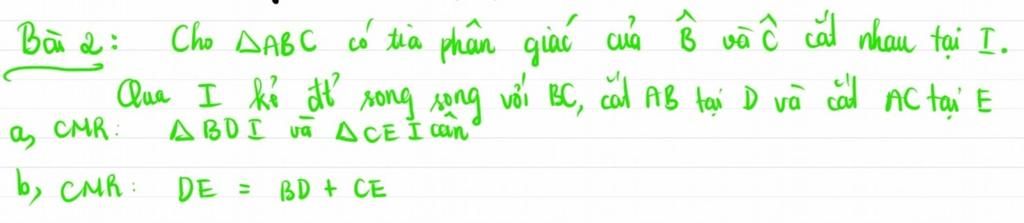 Bài 2: Cho △ABC có tia phân giác của B̂ và Ĉ cắt nhau tại I.
Qua I kẻ đt' song song với BC, cắt AB tại D và cắt AC tại E
a, CMR: △BDI và △CEI cân
b, CMR: DE = BD + CE